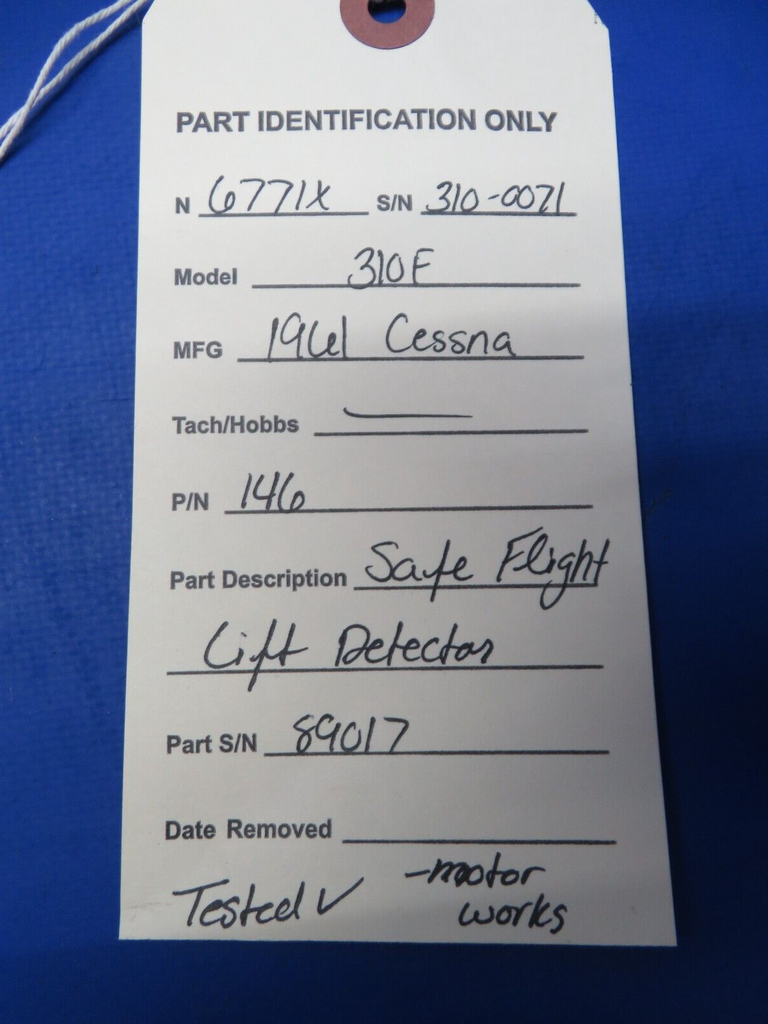 PART IDENTIFICATION ONLY
N 6771X S/N 310-0071
Model 310F
MFG 1961 Cessna
Tach/Hobbs —
P/N 146
Part Description Safe Flight
Lift Detector
Part S/N 89017
Date Removed
Tested ✓ -motor
works